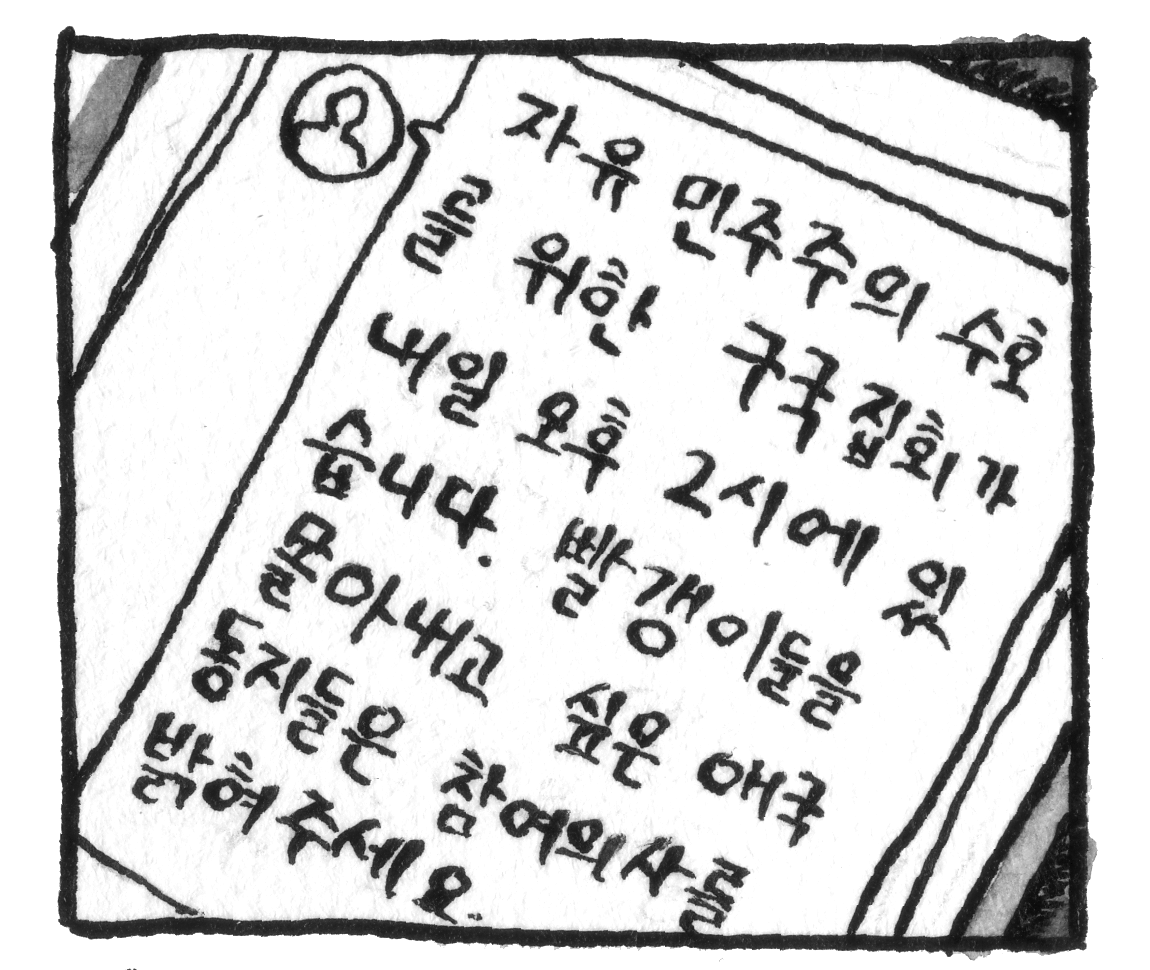 자유 민주주의 수호
를 위한 구국집회가
내일 오후 2시에 있
습니다. 빨갱이들을
몰아내고 싶은 애국
동지들은 참여의사를
밝혀주세요.